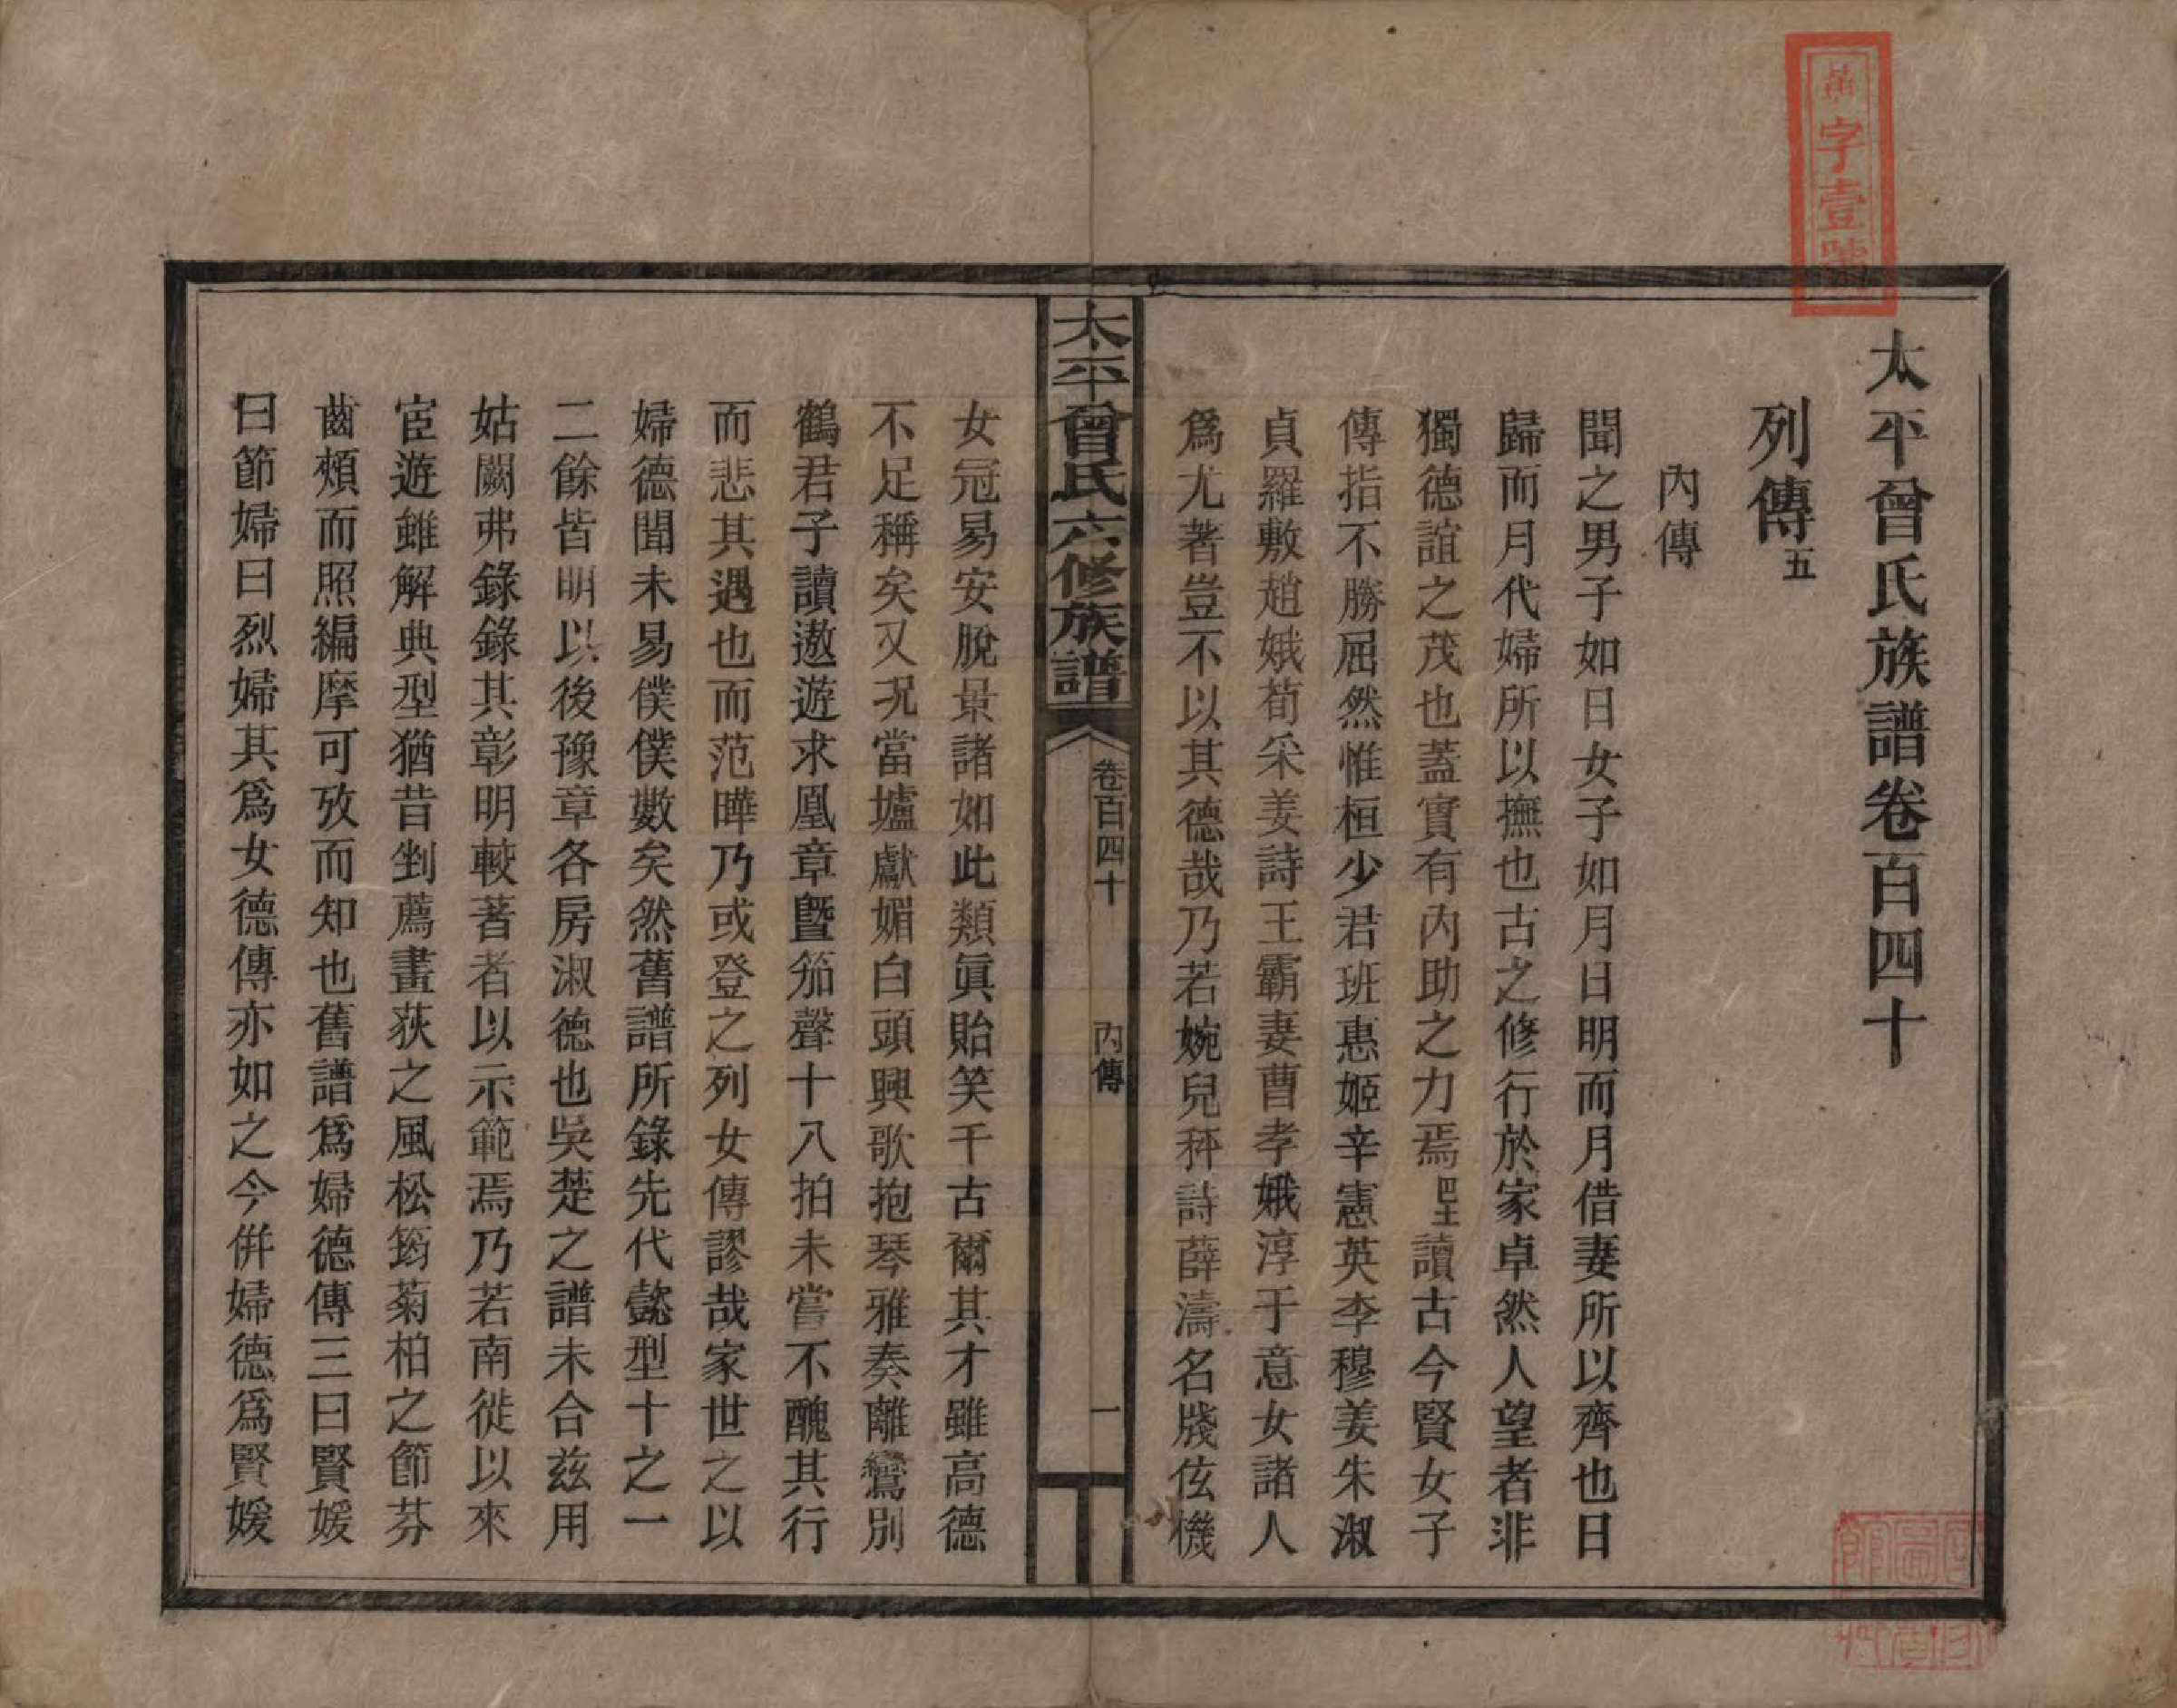 太平曾氏族譜卷百四十
列傳五
內傳
聞之男子如日女子如月日明而月借妻所以齊也日
歸而月代婦所以撫也古之修行於家卓然人望者非
獨德誼之茂也蓋實有內助之力焉㘴讀古今賢女子
傳指不勝屈然惟桓少君班惠姬辛憲英李穆姜朱淑
貞羅敷趙娥荀采姜詩王霸妻曹孝娥淳于意女諸人
爲尤著豈不以其德哉乃若婉兒秤詩薛濤名牋伭機
太平曾氏六修族譜
卷百四十
內傳
一
女冠易安脫景諸如此類眞貽笑千古爾其才雖高德
不足稱矣又況當壚獻媚白頭興歌抱琴雅奏離鸞別
鶴君子讀遨遊求凰章曁笳聲十八拍未嘗不醜其行
而悲其遇也而范曄乃或登之列女傳謬哉家世之以
婦德聞未易僕僕數矣然舊譜所錄先代懿型十之一
二餘皆明以後豫章各房淑德也吳楚之譜未合玆用
姑闕弗錄錄其彰明較著者以示範焉乃若南徙以來
宦遊雖解典型猶昔剉薦畫荻之風松筠菊柏之節芬
齒頰而照編摩可攷而知也舊譜爲婦德傳三曰賢媛
曰節婦曰烈婦其爲女德傳亦如之今併婦德爲賢媛
字壹號